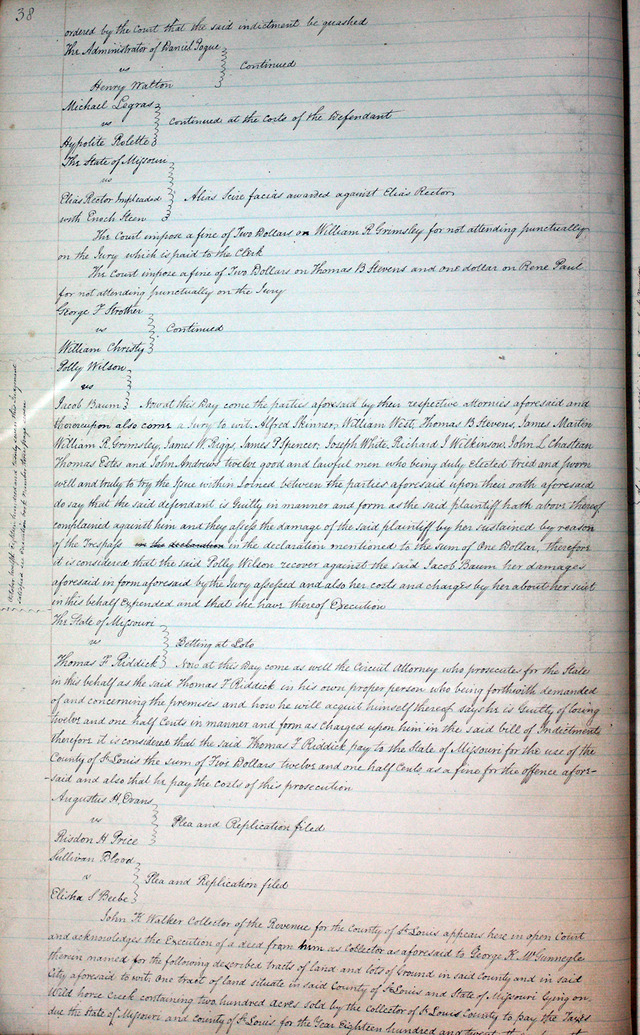 38
ordered by the Court that the said indictment be quashed
The Administrator of Daniel Pogue
vs
Continued
Henry Walton
Michael Legras
vs
Continued at the costs of the Defendant
Hypolite Rolette
The State of Missouri
vs
Elias Rector Impleaded
Alias Scire facias awarded against Elias Rector
with Enoch Steen
The Court impose a fine of Two Dollars on William R. Grimsley for not attending punctually
on the Jury which is paid to the Clerk
The Court impose a fine of Two Dollars on Thomas B Stevens and one dollar on Rene Paul
for not attending punctually on the Jury
George F Strother
vs
Continued
William Christy
Polly Wilson
vs
Jacob Baum Now at this Day come the parties aforesaid by their respective attornies aforesaid and
thereupon also come a Jury to wit. Alfred Skinner, William West, Thomas B Stevens, James Martin
William R. Grimsley, James W. Riggs, James P. Spencer, Joseph White, Richard I Wilkinson, John L Chastean
Thomas Estes and John Andrews twelve good and lawful men who being duly elected tried and sworn
well and truly to try the Issue within Joined between the parties aforesaid upon their oath aforesaid
do say that the said defendant is Guilty in manner and form as the said plaintiff hath above thereof
complained against him and they assess the damage of the said plaintiff by her sustained by reason
of the Trespass in the declaration in the declaration mentioned to the sum of One Dollar, therefore
it is considered that the said Polly Wilson recover against the said Jacob Baum her damages
aforesaid in form aforesaid by the Jury assessed and also her costs and charges by her about her suit
in this behalf expended and that she have thereof Execution
The State of Missouri
vs
Betting at Loto
Thomas F Riddick Now at this Day come as well the Circuit Attorney who prosecutes for the State
in this behalf as the said Thomas F Riddick in his own proper person who being forthwith demanded
of and concerning the premises and how he will acquit himself thereof says he is Guilty of losing
twelve and one half Cents in manner and form as charged upon him in the said bill of Indictment
therefore it is considered that the said Thomas F. Riddick pay to the State of Missouri for the use of the
County of St Louis the sum of Two Dollars twelve and one half Cents as a fine for the offence afore-
-said and also that he pay the costs of this prosecution
Augustus H, Evans
vs
Plea and Replication filed
Risdon H Price
Sullivan Blood
v
Plea and Replication filed
Elisha S Beebe
John K Walker Collector of the Revenue for the County of St Louis appears here in open Court
and acknowledges the Execution of a deed from him as Collector as aforesaid to George K. McGunnegle
therein named for the following described tracts of land and lots of Ground in said County and in said
City aforesaid to wit. One tract of land situate in said County of St Louis and State of Missouri lying on
Wild horse Creek containing two hundred acres sold by the Collector of St Louis County to pay the Taxes
due the State of Missouri and County of St Louis for the Year Eighteen hundred and twenty